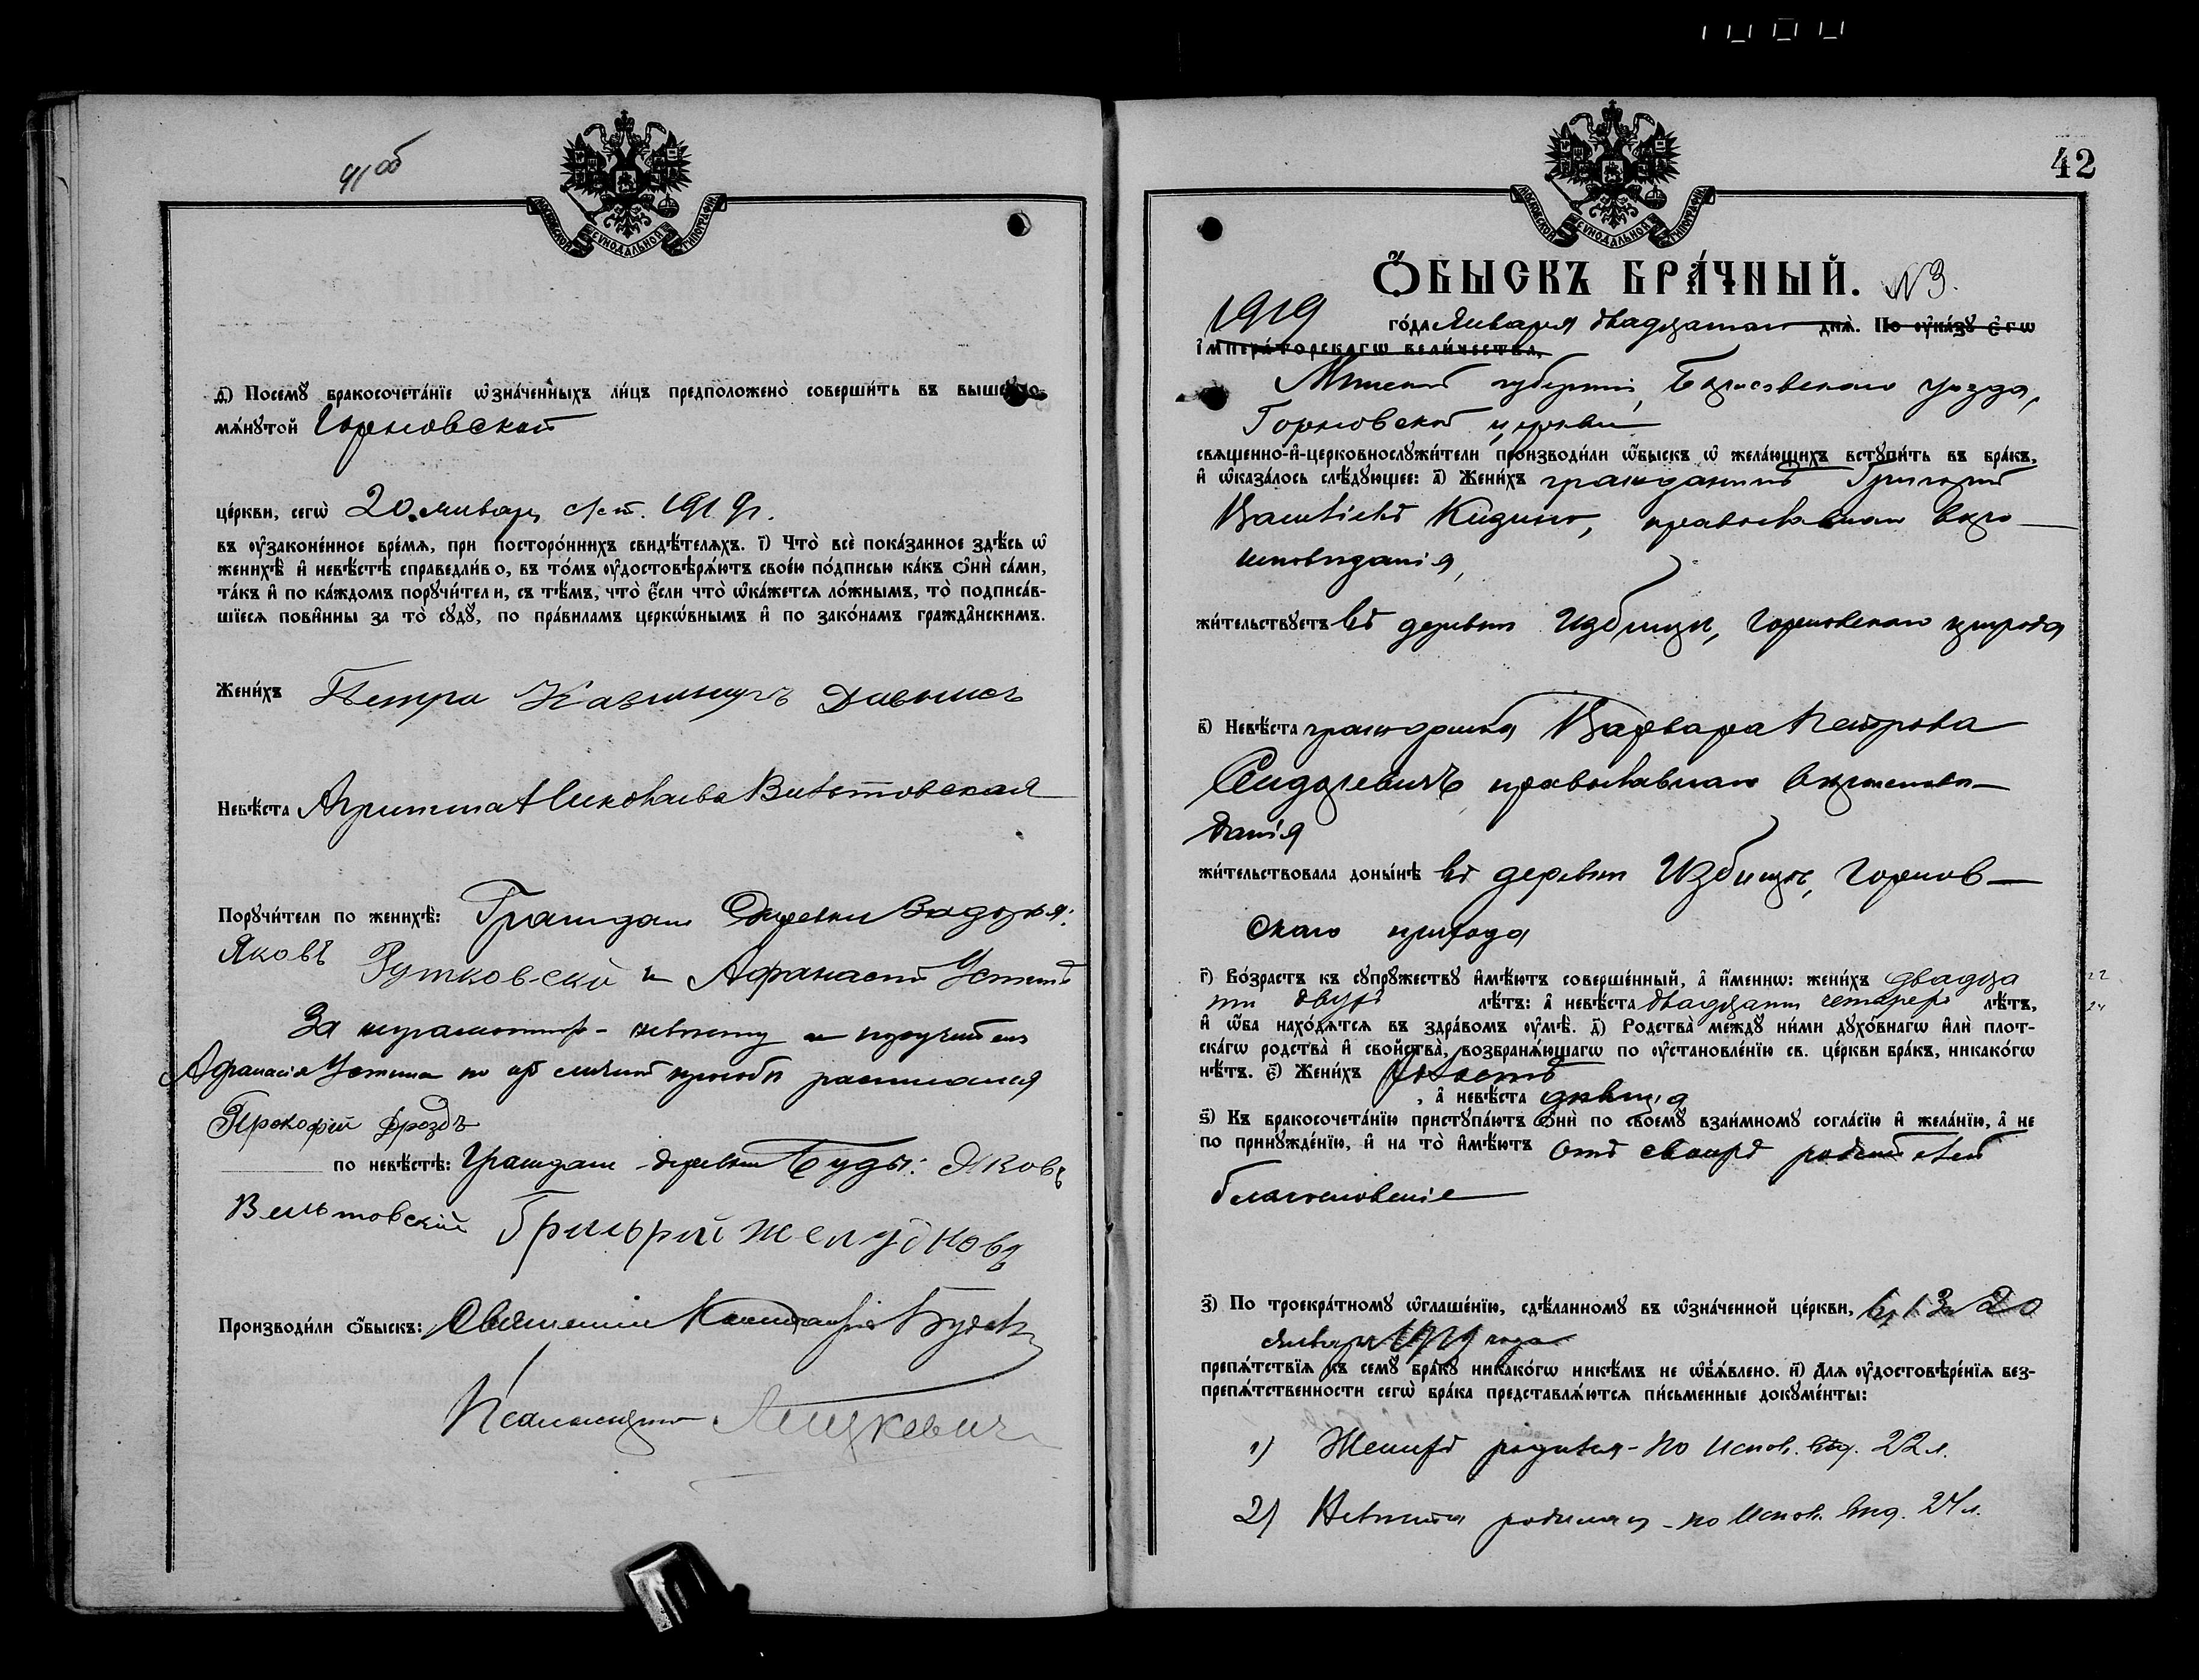 41 об
МОСКОВСКОЙ СѴНОДАЛЬНОЙ ТИПОГРАФІИ
д҃і) Посемꙋ̀ бракосочета́нїе ѡ҆зна́ченныхъ ли́цъ предположено̀ соверши́ть въ вышепо-
мѧ́нꙋтой Горновской
це́ркви, сегѡ̀ 20 января с/ст. 1919 г.
въ ᲂу҆законе́нное вре́мѧ, при посторо́ннихъ свидѣ́телѧхъ. і҃) Что̀ всѐ пока́занное здѣ́сь ѡ҆
женихѣ̀ и҆ невѣ́стѣ справедли́во, въ то́мъ ᲂу҆достовѣрѧ́ютъ свое́ю по́дписью ка́къ ѻ҆нѝ са́ми,
та́къ и҆ по ка́ждомъ порꙋчи́тели, съ тѣ́мъ, что̀ є҆́сли что̀ ѡ҆ка́жетсѧ ло́жнымъ, то̀ подписа́в-
шїесѧ пови́нны за то̀ сꙋдꙋ̀, по пра́виламъ церкѡ́внымъ и҆ по зако́намъ гражда̂нскимъ.
Жени́хъ Петра
Невѣ́ста
Порꙋчи́тели по женихѣ̀: Граждане деревни
Яковъ Рутковскій и Афанасій Устинъ
За неграмотную невѣсту и поручителя
Афанасія Устина по ихъ личной просьбѣ расписался
Прокофій Дроздъ
по невѣ́стѣ: Граждане деревни Буды: Яковъ
Григорій Желудковъ
Производи́ли ѻ҆́быскъ: Священникъ
Псаломщикъ Мицкевичъ
42
МОСКОВСКОЙ СѴНОДАЛЬНОЙ ТИПОГРАФІИ
Ѻ҆́БЫСКЪ БРА́ЧНЫЙ. №3.
1919 го́да Января двадцатаго днѧ̀. По ᲂу҆ка́зꙋ є҆гѡ̀
і҆мпера́торскагѡ вели́чества,
Минской губерніи, Борисовскаго уѣзда,
Горновской церкви
свѧще́нно-и҆-церковнослꙋжи́тели производи́ли ѻ҆́быскъ ѡ҆ жела́ющихъ встꙋпи́ть въ бра́къ,
и҆ ѡ҆каза́лось слѣ́дꙋющее: а҃) Жени́хъ гражданинъ Григорій
православнаго вѣро-
исповѣданія,
жи́тельствꙋетъ въ деревнѣ Избищи, Горновскаго прихода
в҃) Невѣ́ста гражданка Варвара Петрова
православнаго вѣроисповѣ-
данія
жи́тельствовала доны́нѣ въ деревнѣ Избищи, Горнов-
скаго прихода
г҃) Во́зрастъ къ сꙋпрꙋ́жествꙋ и҆мѣ́ютъ соверше́нный, а҆ и҆́меннѡ: жени́хъ двадца 22
ти двухъ лѣ́тъ: а҆ невѣ́ста двадцати четырехъ лѣ́тъ, 24
и҆ ѡ҆́ба нахо́дѧтсѧ въ здра́вомъ ᲂу҆мѣ̀. д҃) Родства̀ междꙋ̀ ни́ми дꙋхо́внагѡ и҆лѝ плот-
ска́гѡ родства̀ и҆ сво́йства̀, возбранѧ́ющагѡ по ᲂу҆становле́нїю св. це́ркви бра́къ, никако́гѡ
нѣ́тъ. є҃) Жени́хъ холостъ
, а҆ невѣ́ста дѣвица
ѕ҃) Къ бракосочета́нїю пристꙋпа́ютъ ѻ҆нѝ по своемꙋ̀ взаи́мномꙋ согла́сїю и҆ жела́нїю, а҆ не
по принꙋжде́нїю, и҆ на то̀ и҆мѣ́ютъ отъ своихъ родителей
благословеніе
з҃) По троекра́тномꙋ ѡ҆глаше́нїю, сдѣ́ланномꙋ въ ѡ҆зна́ченной це́ркви, 20
Января 1919 года
препѧ́тствїѧ къ семꙋ̀ бра́кꙋ никако́гѡ никѣ́мъ не ѡ҆б̾ѧ́влено. и҃) Длѧ ᲂу҆достовѣре́нїѧ без-
препѧ́тственности сегѡ̀ бра́ка представлѧ́ютсѧ пи́сьменные докꙋме́нты:
1) Женихъ родился - по Испов. вѣд. 22 л.
2) Невѣста родилась - по Испов. вѣд. 24 л.